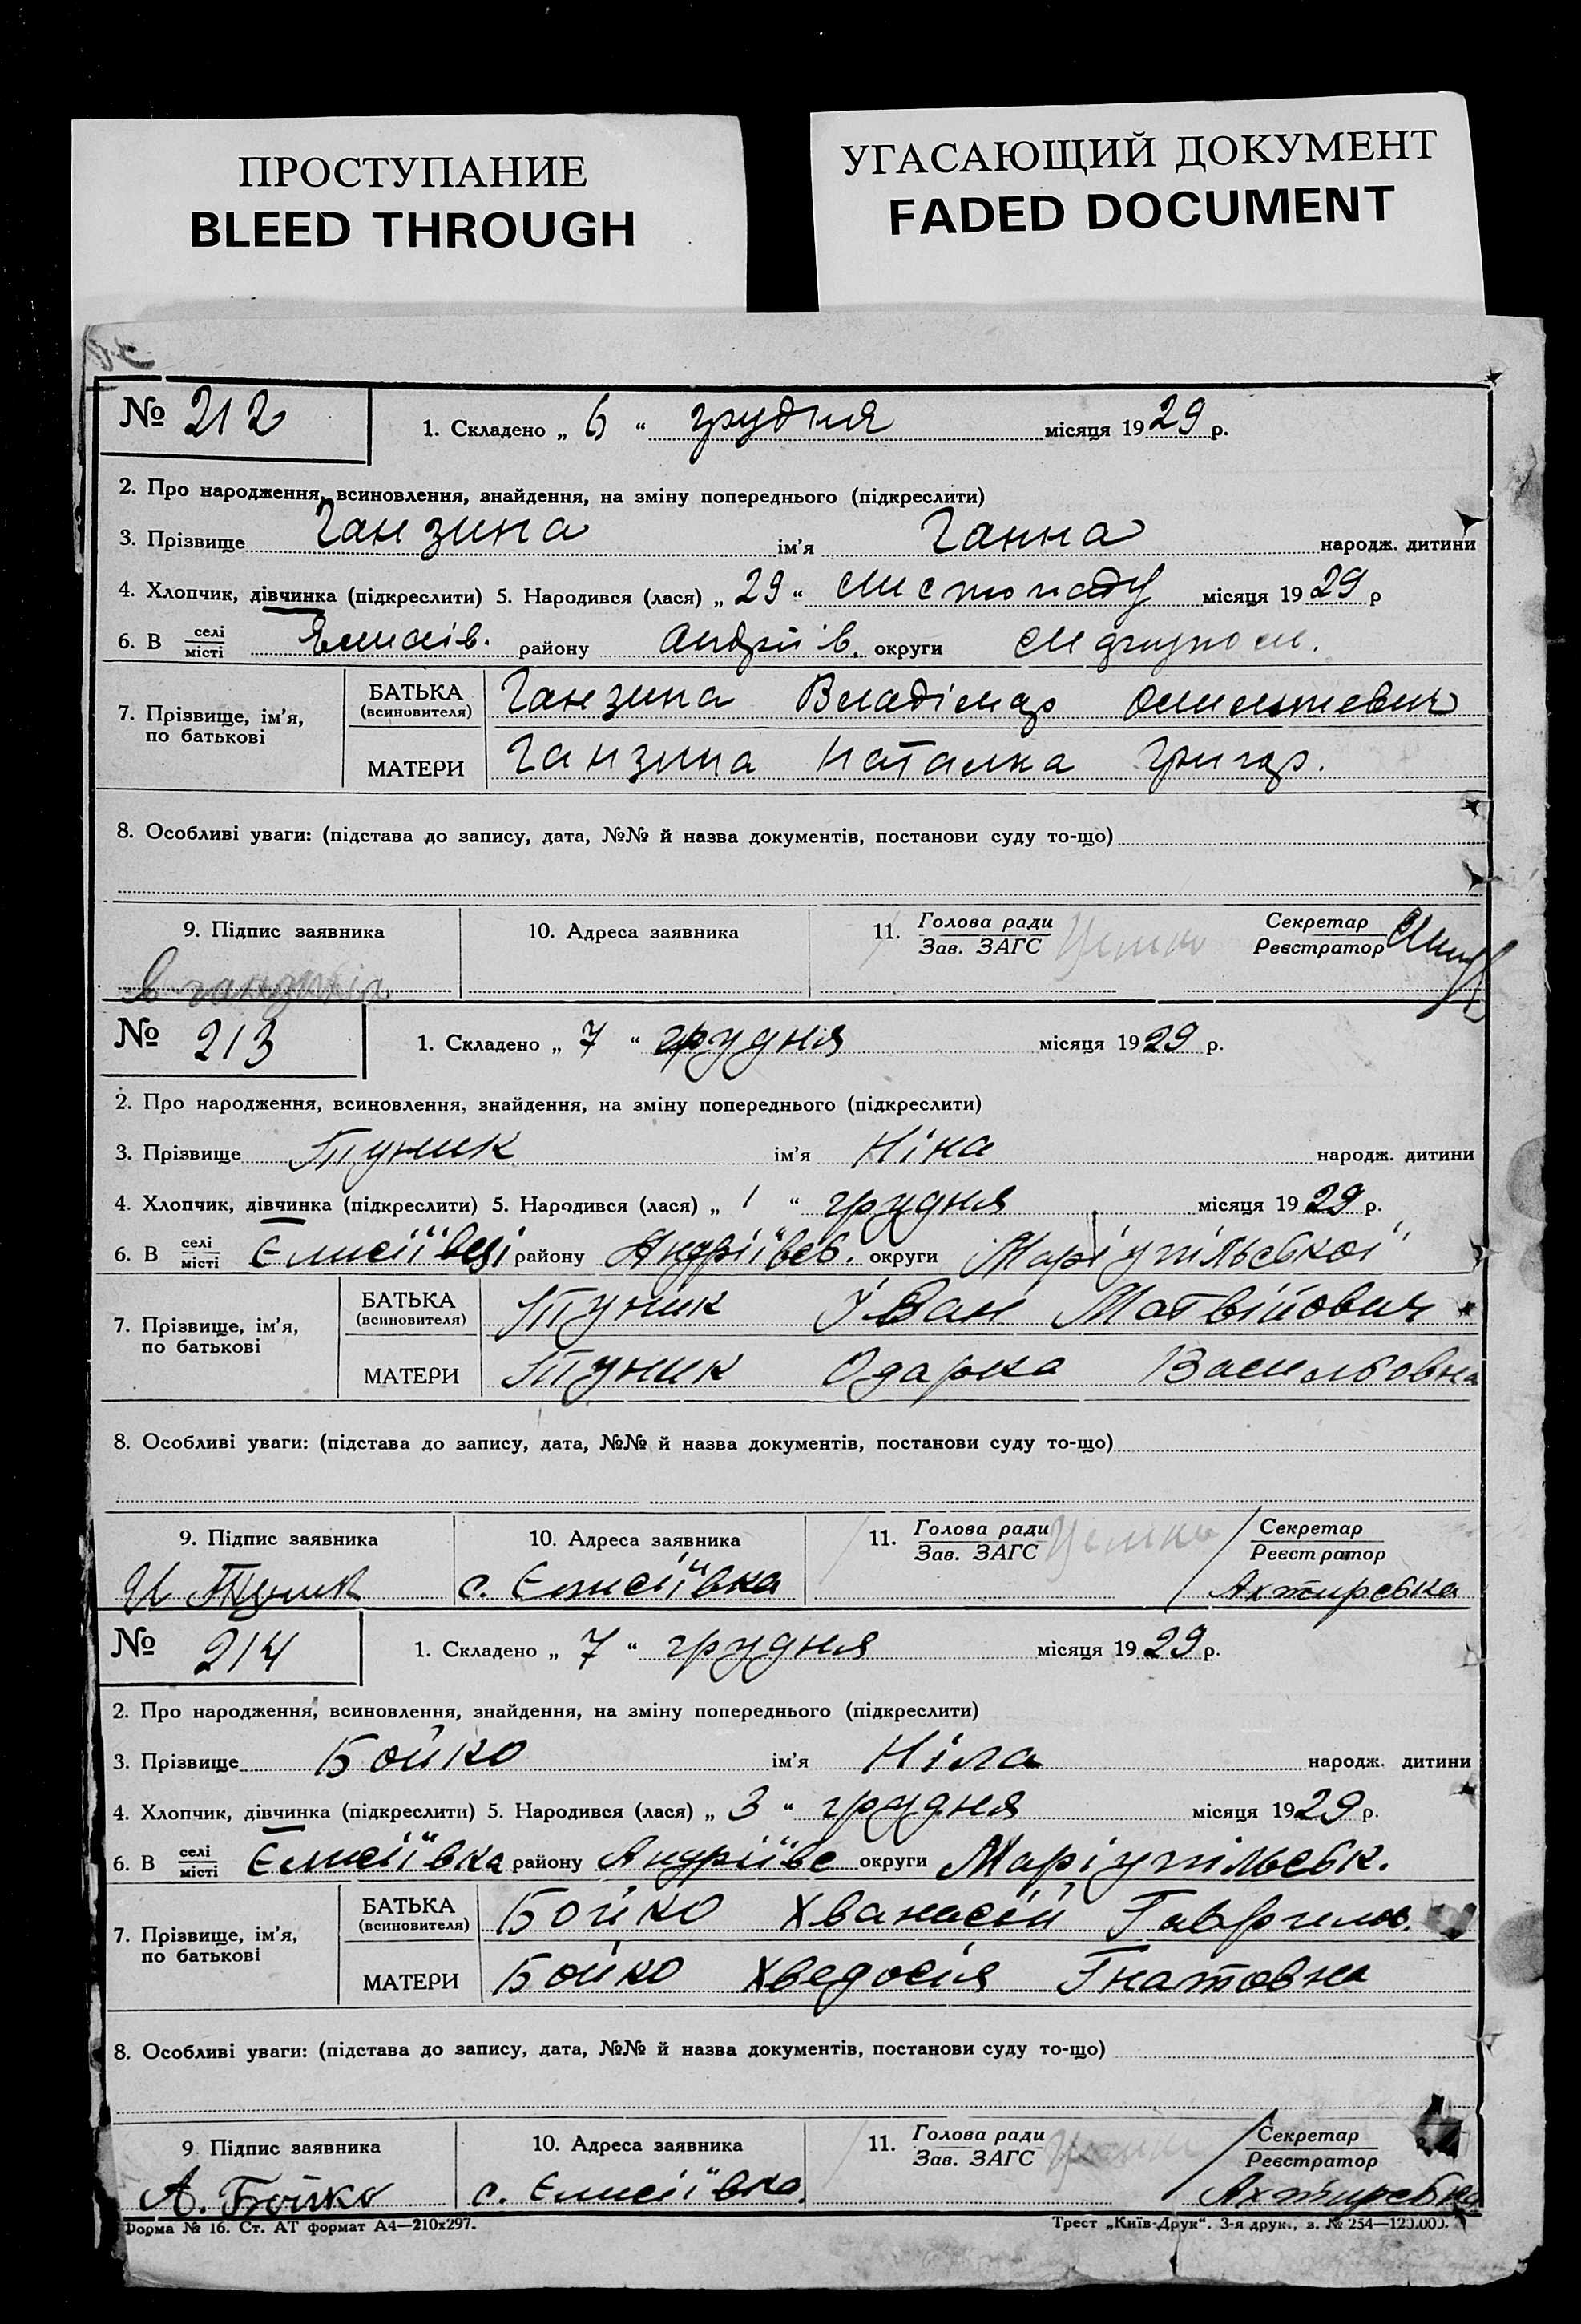 ПРОСТУПАНИЕ
BLEED THROUGH
УГАСАЮЩИЙ ДОКУМЕНТ
FADED DOCUMENT
№ 212
1. Складено „ 6 “ грудня місяця 1929 р.
2. Про народження, всиновлення, знайдення, на зміну попереднього (підкреслити)
3. Прізвище Ганзина ім'я Ганна народж. дитини
4. Хлопчик, дівчинка (підкреслити) 5. Народився (лася) „ 29 “ листопаду місяця 1929 р
6. В селі/місті район у Андріїв. округи
7. Прізвище, ім'я, по батькові
БАТЬКА (всиновителя) Ганзина Владімар
МАТЕРИ Ганзина Наталка Григор.
8. Особливі уваги: (підстава до запису, дата, №№ й назва документів, постанови суду то-що)
9. Підпис заявника 10. Адреса заявника 11. Голова ради/Зав. ЗАГС Секретар/Реєстратор
№ 213
1. Складено „ 7 “ грудня місяця 1929 р.
2. Про народження, всиновлення, знайдення, на зміну попереднього (підкреслити)
3. Прізвище Туник ім'я Ніна народж. дитини
4. Хлопчик, дівчинка (підкреслити) 5. Народився (лася) „ 1 “ грудня місяця 1929 р.
6. В селі/місті Єлисіївці району Андріївсв. округи Маріупільської
7. Прізвище, ім'я, по батькові
БАТЬКА (всиновителя) Туник Іван Матвійович
МАТЕРИ Туник Одарка Васильовна
8. Особливі уваги: (підстава до запису, дата, №№ й назва документів, постанови суду то-що)
9. Підпис заявника 10. Адреса заявника 11. Голова ради/Зав. ЗАГС Секретар/Реєстратор
И Туник с. Єлисіївка Ахтирська
№ 214
1. Складено „ 7 “ грудня місяця 1929 р.
2. Про народження, всиновлення, знайдення, на зміну попереднього (підкреслити)
3. Прізвище Бойко ім'я Ніла народж. дитини
4. Хлопчик, дівчинка (підкреслити) 5. Народився (лася) „ 3 “ грудня місяця 1929 р.
6. В селі/місті Єлисіївка району Андріївс округи Маріупільськ.
7. Прізвище, ім'я, по батькові
БАТЬКА (всиновителя) Бойко Хванасій Гаврилов.
МАТЕРИ Бойко Хведосія Гнатовна
8. Особливі уваги: (підстава до запису, дата, №№ й назва документів, постанови суду то-що)
9 Підпис заявника 10. Адреса заявника 11. Голова ради/Зав. ЗАГС Секретар/Реєстратор
А. Бойко с. Єлисіївка Ахтирська
Форма № 16. Ст. АТ формат А4—210х297.
Трест „Київ-Друк“. 3-я друк., з. № 254—120.000.